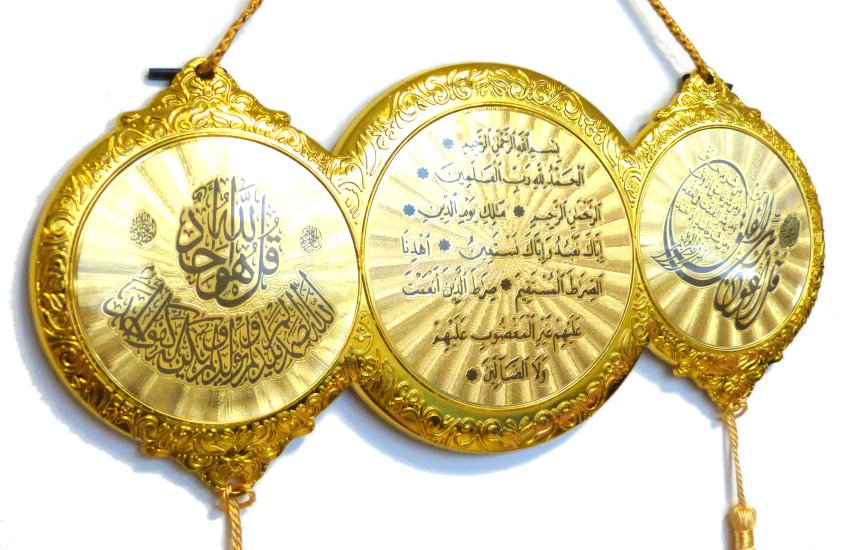 قل اعوذ برب الفلق
بسم الله الرحمن الرحيم
الحمد لله رب العلمين
الرحمن الرحيم * ملك يوم الدين
اياك نعبد واياك نستعين * اهدنا
الصرط المستقيم * صرط الذين انعمت
عليهم غير المغضوب عليهم
ولا الضالين *
قل هو الله احد
الله الصمد لم يلد ولم يولد ولم يكن له كفوا احد